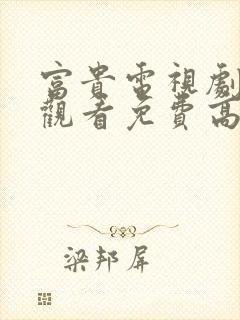 富貴電視劇
觀看免費高
梁邦屏